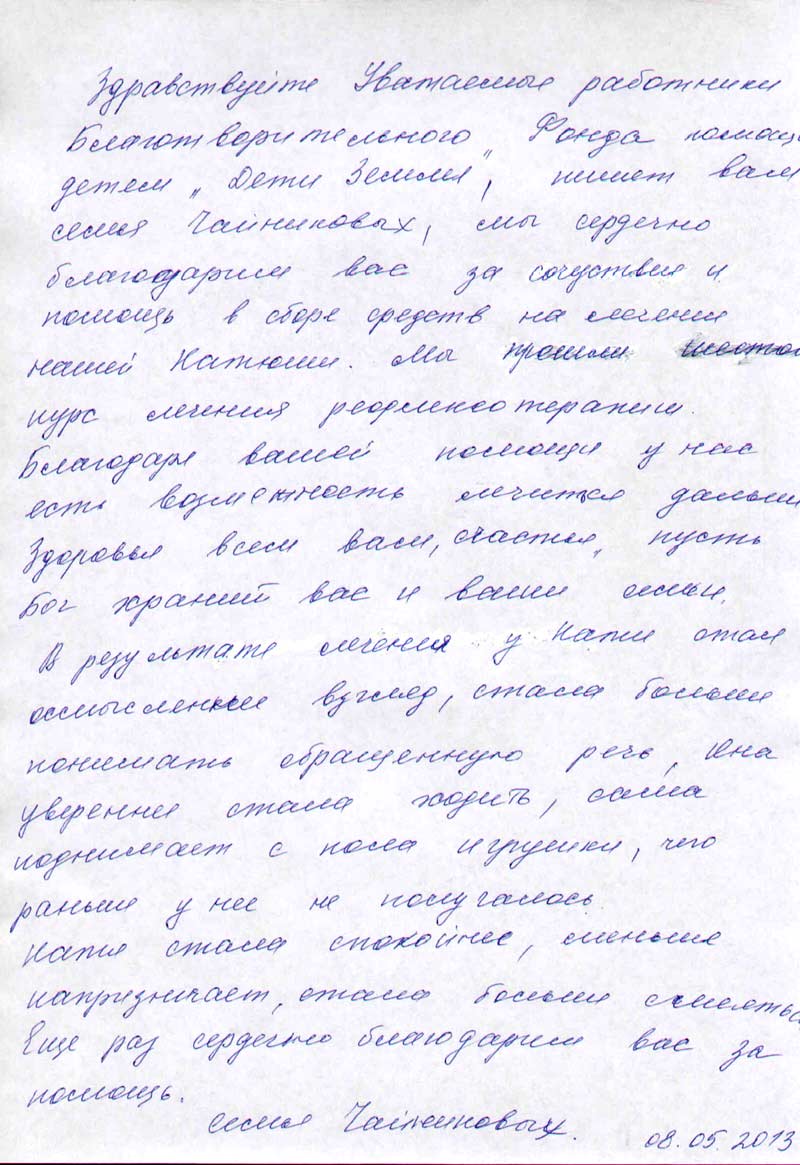 Здравствуйте Уважаемые работники
Благотворительного „ Фонда помощи
детям „ Дети Земли", пишет вам
семья Чайниковых, мы сердечно
благодарим вас за сочуствия и
помощь в сборе средств на лечения
нашей Катюши. Мы прошли
курс лечения рефлексотерапии.
Благодаря вашей помощи у нас
есть возможность лечится дальше
Здоровья всем вам, счастья, пусть
Бог храний вас и ваши семьи.
В результате лечения у Кати стал
осмысленные взгляд, стала больше
понимать обращенную речь, Она
увереннее стала ходить, сама
поднимает с пола игрушки, чего
раньше у нее не получалось.
Катя стала спокойнее, меньше
капризничает, стала больше смеяться
Еще раз сердечно благодарим вас за
помощь.
семья Чайниковых.
08.05.2013